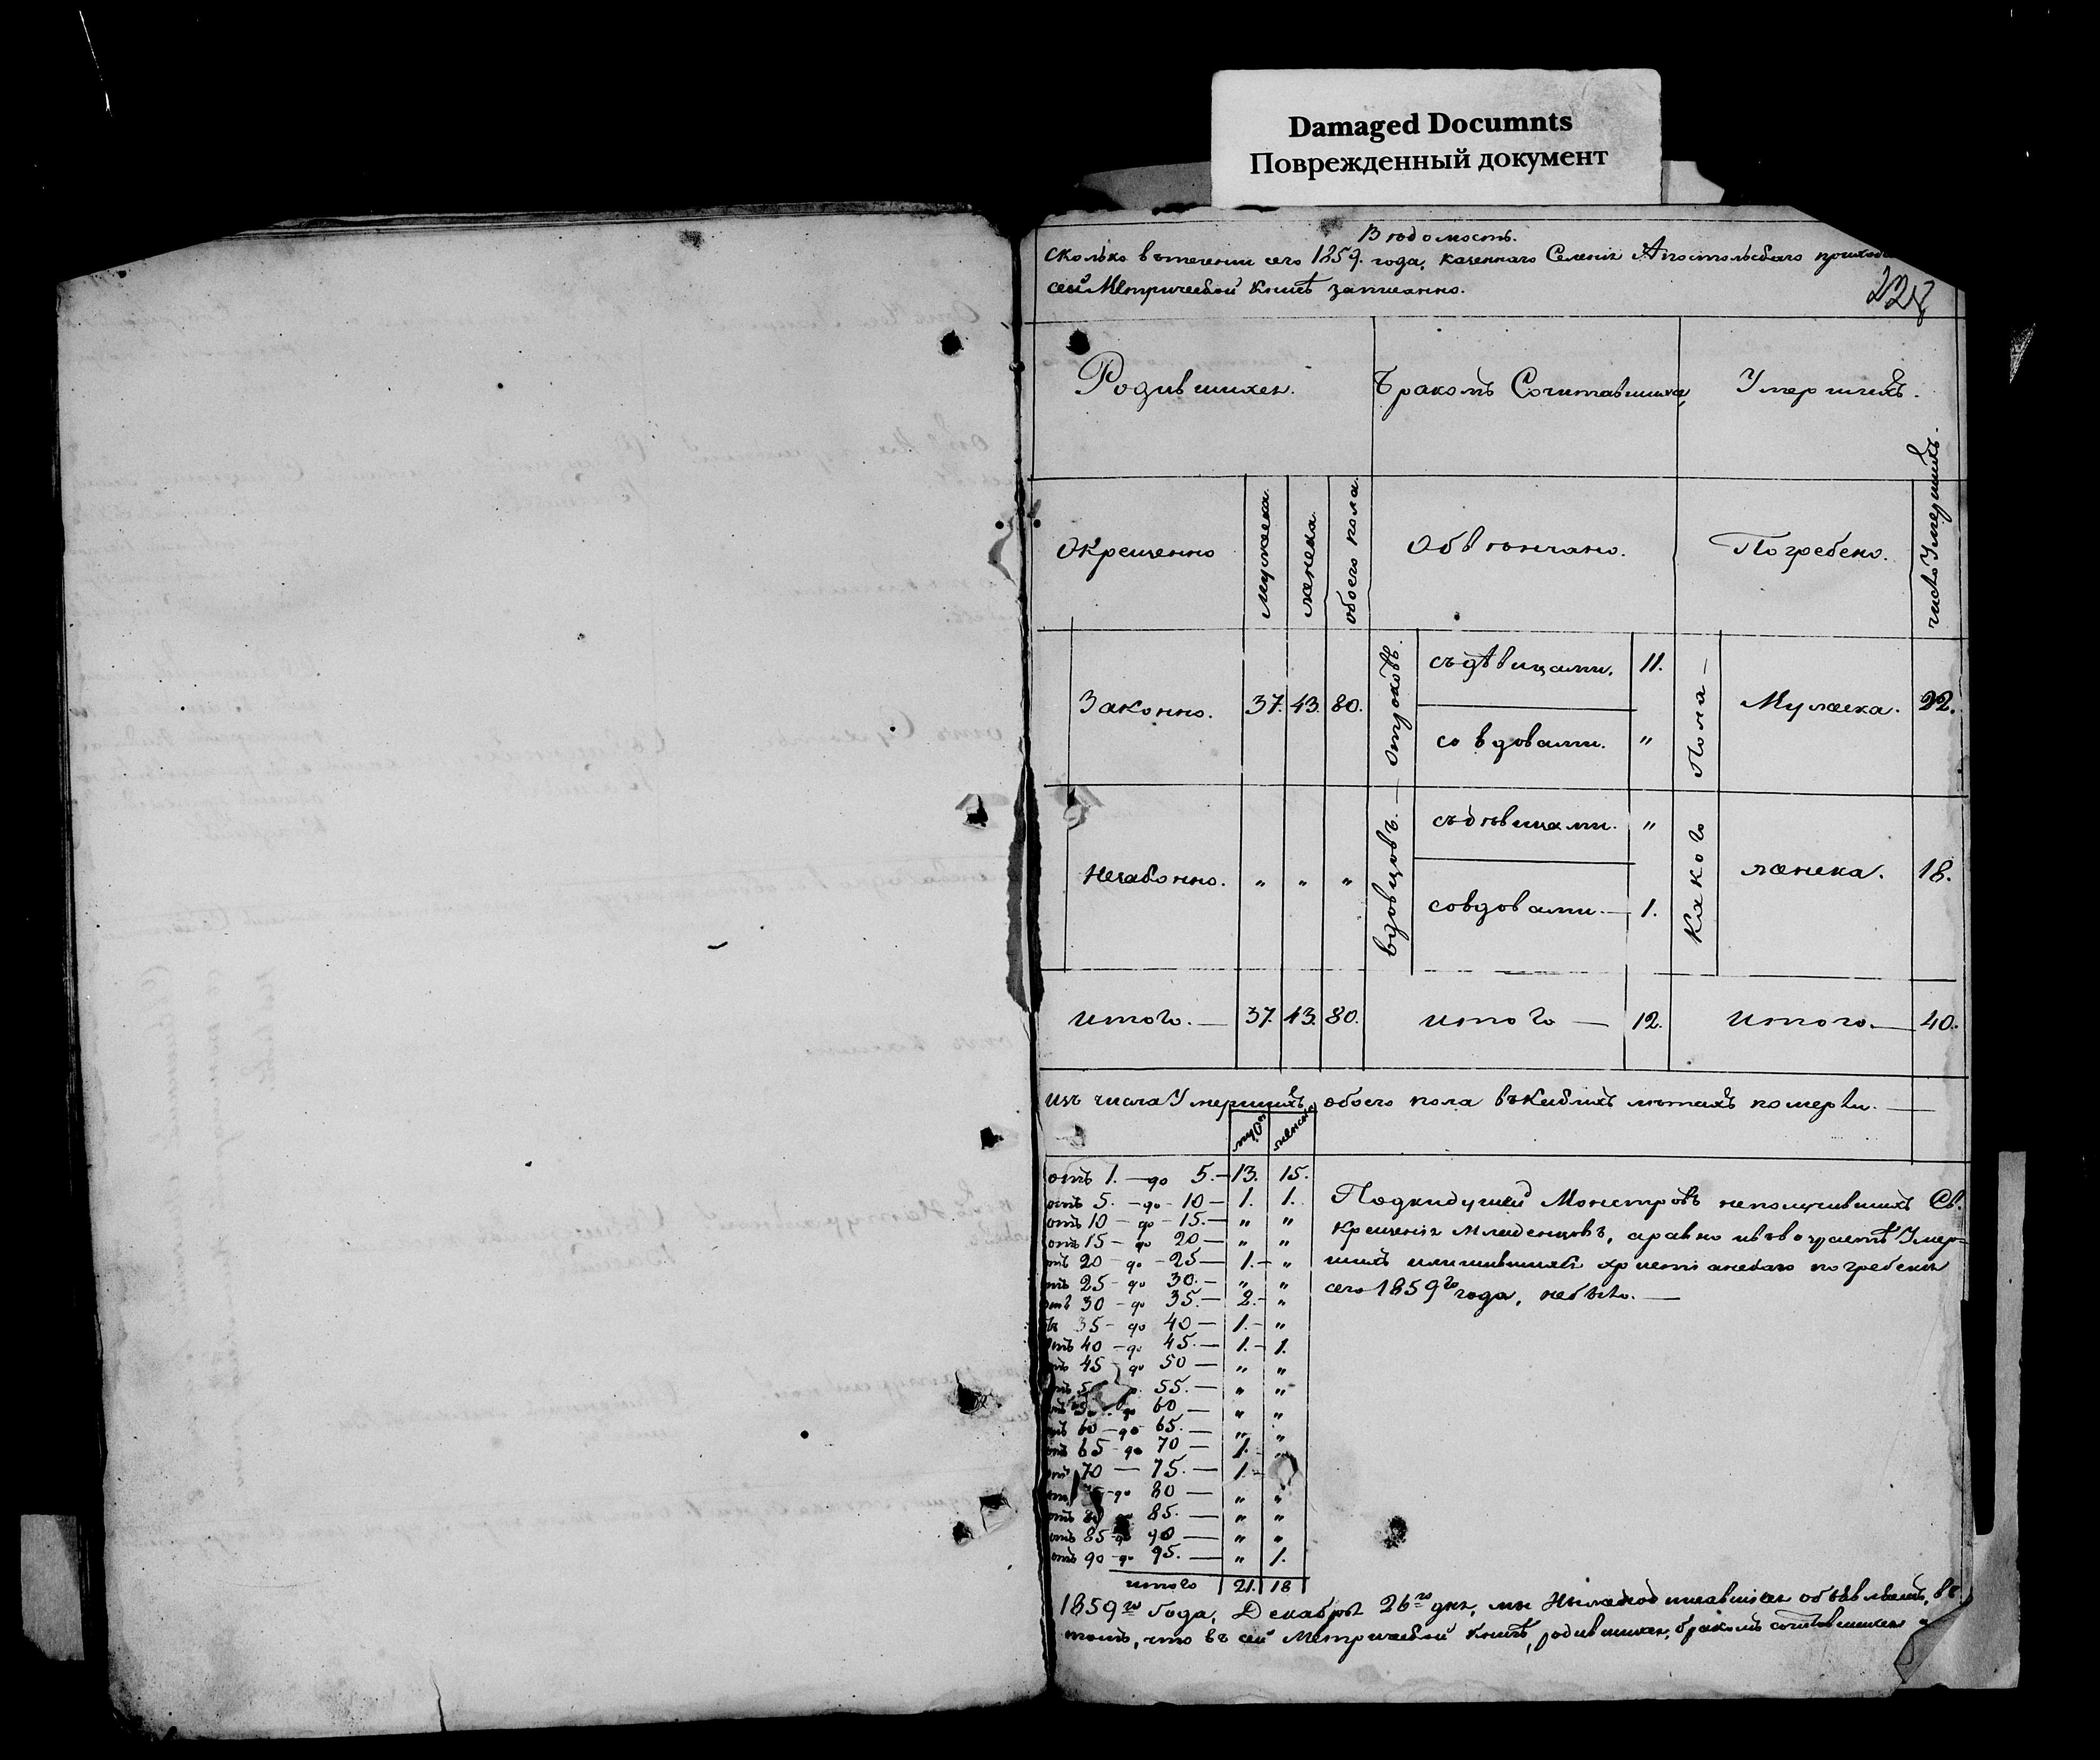 Damaged Documnts
Поврежденный документ
Вѣдомость.
сколько въ теченіи сего 1859. года, казеннаго Селенія Апостольскаго
сей Метрической Книгѣ записанно.
228
Родившихся. Бракомъ Сочитавшихся, Умершихъ.
Окрещенно мужеска. женска. обоего пола. Обвѣнчано. Погребено. число Умершихъ.
Законно. 37. 43. 80. отроковъ. съ дѣвицами. 11. Какого Пола — Мужеска. 22.
со вдовами. "
Незаконно. " " " вдовцовъ. — съ дѣвицами. " женска. 18.
со вдовами. — 1.
итого. — 37. 43. 80. итого — 12. итого. — 40.
изъ числа Умершихъ, обоего пола въ какихъ лѣтахъ померли. —
муж женска
отъ 1. — до 5. — 13. 15.
отъ 5. — до — 10 — 1. 1.
отъ 10 — до — 15. — " "
отъ 15 — до 20 — " "
отъ 20 — до — 25 — 1. — "
отъ 25 — до 30. — " "
отъ 30 — до 35. — 2. — "
ъ 35 — до 40 — 1. — "
отъ 40 — до 45. — 1. — 1.
отъ 45 — до 50 — " "
отъ 5 55. — " "
до 60 — " "
отъ 60 — до 65. — " "
отъ 65 — до 70 — 1. "
отъ 70 — 75. — 1. —
75 — до 80 — " "
отъ 80 85. — " "
отъ 85 — до 90 — " "
отъ 90 — до 95. — " 1.
итого 21. 18
Подкидушей Монстровъ неполучившихъ Св.
Крещенія Младенцовъ, аравно Умер=
шихъ илишившихся христіанскаго погребенія
сего 1859го года, небыло. —
1859го Года, Декабря 26го дня, мы Нижеподписавшіеся объявляемъ, въ
томъ, что въ сей Метрической Книгѣ, родившихся, бракомъ сочитавшихся и